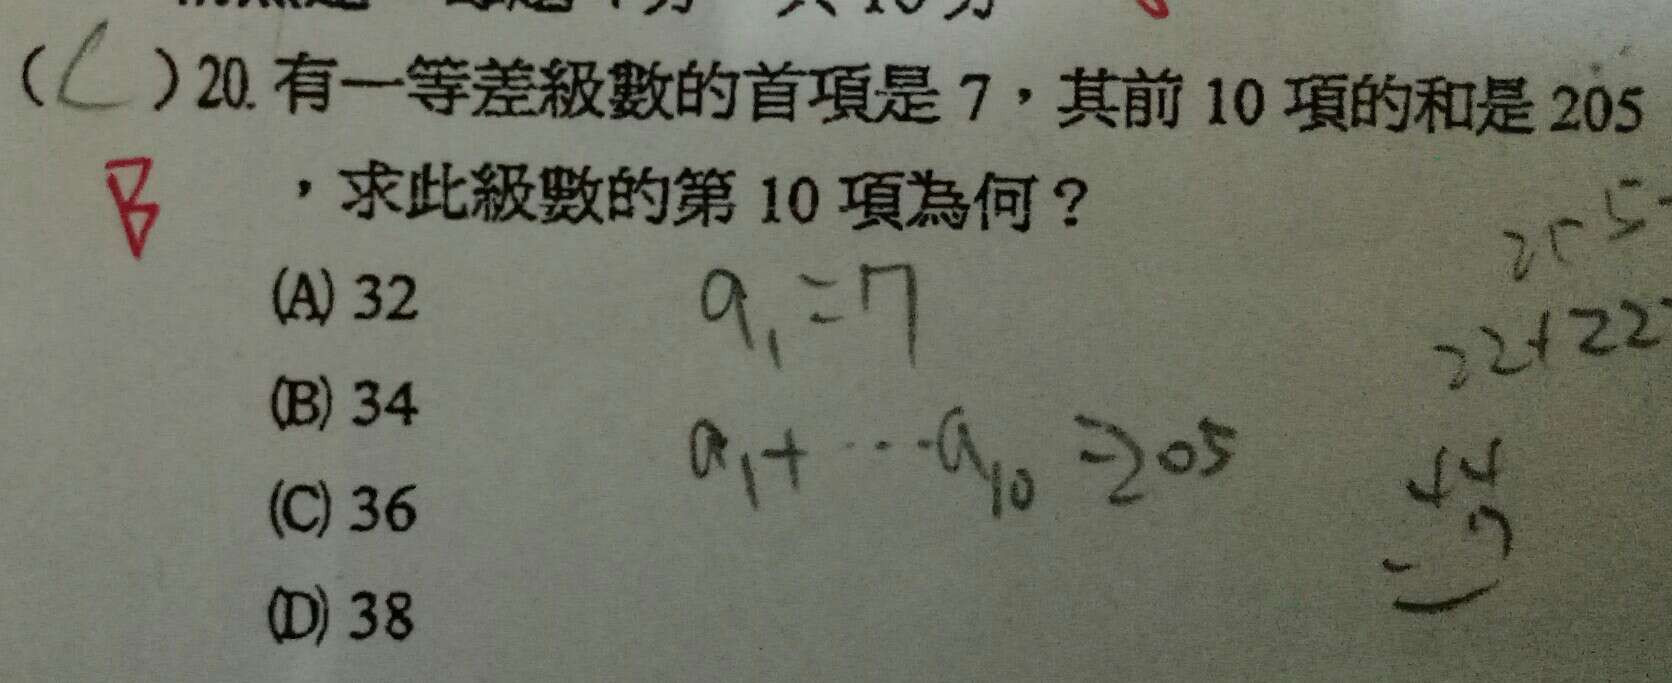 (C) 20. 有一等差級數的首項是 7，其前 10 項的和是 205
B
，求此級數的第 10 項為何？
(A) 32
(B) 34
(C) 36
(D) 38
a₁=7
a₁+…a₁₀=205
22+22
44
-7